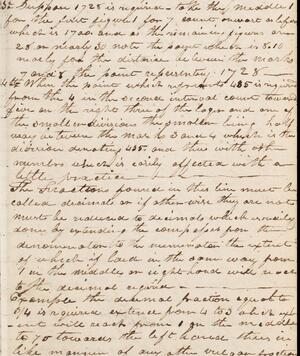 Suppose 1728 is required to the the middle 1
for the first figure 1 for 7 count onward as before
which is 1700 and as the remaining figures are
28 or nearly 30 note the same which is
nearly for the distance between the marks
7 and 8 the point representing 1728
When the point which refers to 435 is required
from the 4 in the second interval count toward
five on the right three of the larger and one of
the smaller division the smaller half
way between the marks 3 and 4 which is the
division denoting 435 and thus with other
numbers which is easily affected with a
little practice
The Fractions found in this line must be
called decimals or if otherwise they are not
must be reduced to decimals which is easily
done by extending the compasses from the
denominator to the numerator the extent
of which if laid in the same way from
1 in the middle or right hand will reach
to the decimal required
Example the decimal fraction equal to
3/4 is required extend from 4 to 3 which ext
ent will reach from 1 on the middle
to 75 towards the left hand the
like manner of any other